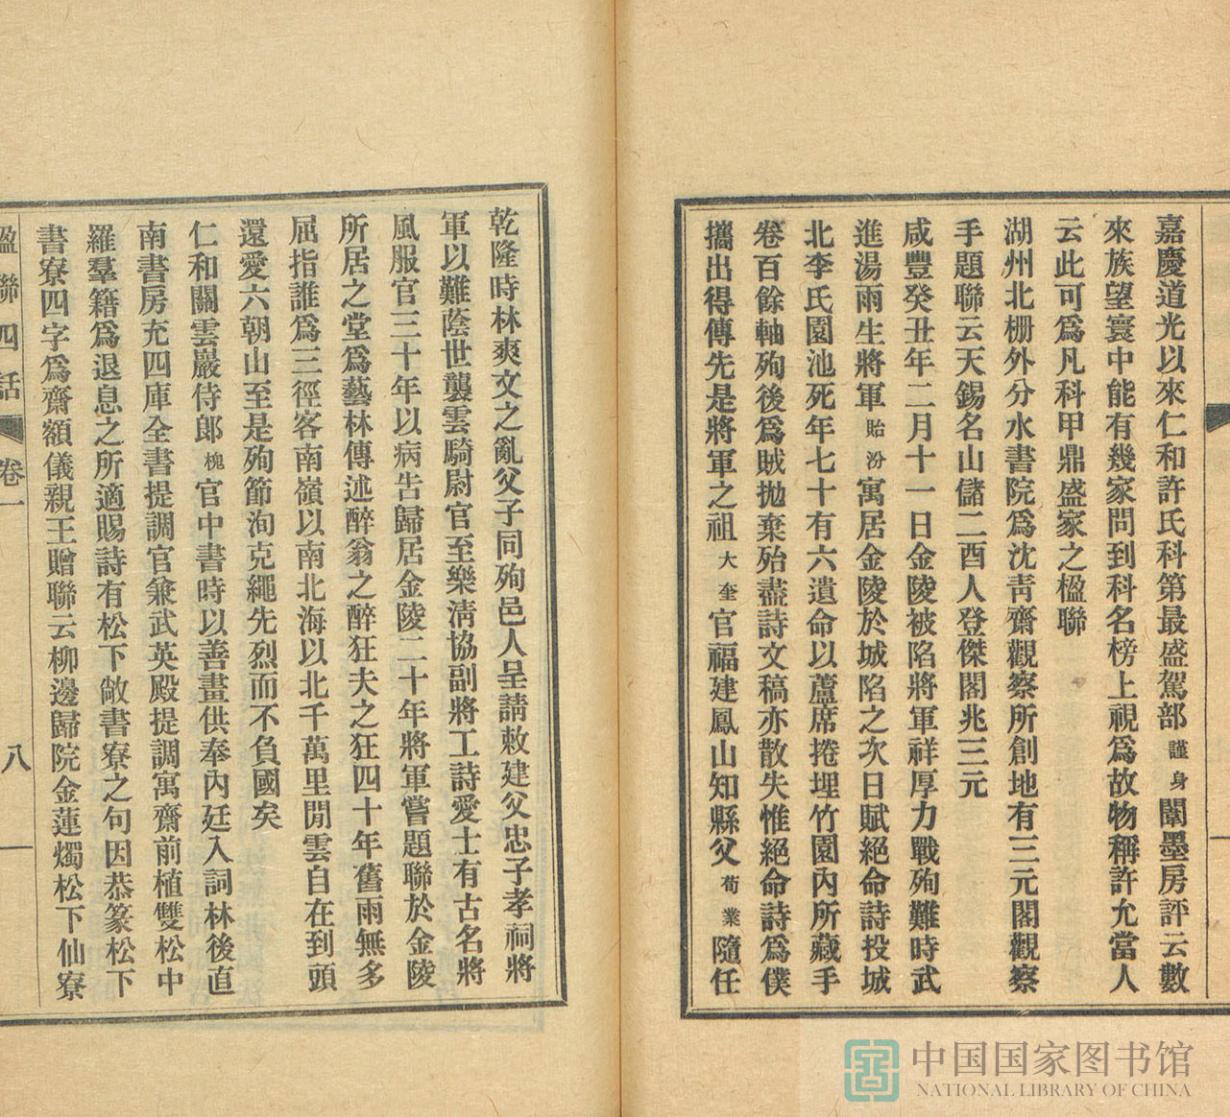 嘉慶道光以來仁和許氏科第最盛駕部謹身闈墨房評云數
來族望寰中能有幾家問到科名榜上視爲故物稱許允當人
云此可爲凡科甲鼎盛家之楹聯
湖州北柵外分水書院爲沈靑齋觀察所創地有三元閣觀察
手題聯云天錫名山儲二酉人登傑閣兆三元
咸豐癸丑年二月十一日金陵被陷將軍祥厚力戰殉難時武
進湯雨生將軍貽汾寓居金陵於城陷之次日賦絕命詩投城
北李氏園池死年七十有六遺命以蘆席捲埋竹園內所藏手
卷百餘軸殉後爲賊拋棄殆盡詩文稿亦散失惟絕命詩爲僕
攜出得傳先是將軍之祖大奎官福建鳳山知縣父荀業隨任
乾隆時林爽文之亂父子同殉邑人呈請敕建父忠子孝祠將
軍以難蔭世襲雲騎尉官至樂淸協副將工詩愛士有古名將
風服官三十年以病告歸居金陵二十年將軍嘗題聯於金陵
所居之堂爲藝林傳述醉翁之醉狂夫之狂四十年舊雨無多
屈指誰爲三徑客南嶺以南北海以北千萬里閒雲自在到頭
還愛六朝山至是殉節洵克繩先烈而不負國矣
仁和關雲巖侍郞槐官中書時以善畫供奉內廷入詞林後直
南書房充四庫全書提調官兼武英殿提調寓齋前植雙松中
羅羣籍爲退息之所適賜詩有松下敞書寮之句因恭篆松下
書寮四字爲齋額儀親王贈聯云柳邊歸院金蓮燭松下仙寮
楹聯四話 卷一 八
中国国家图书馆
NATIONAL LIBRARY OF CHINA